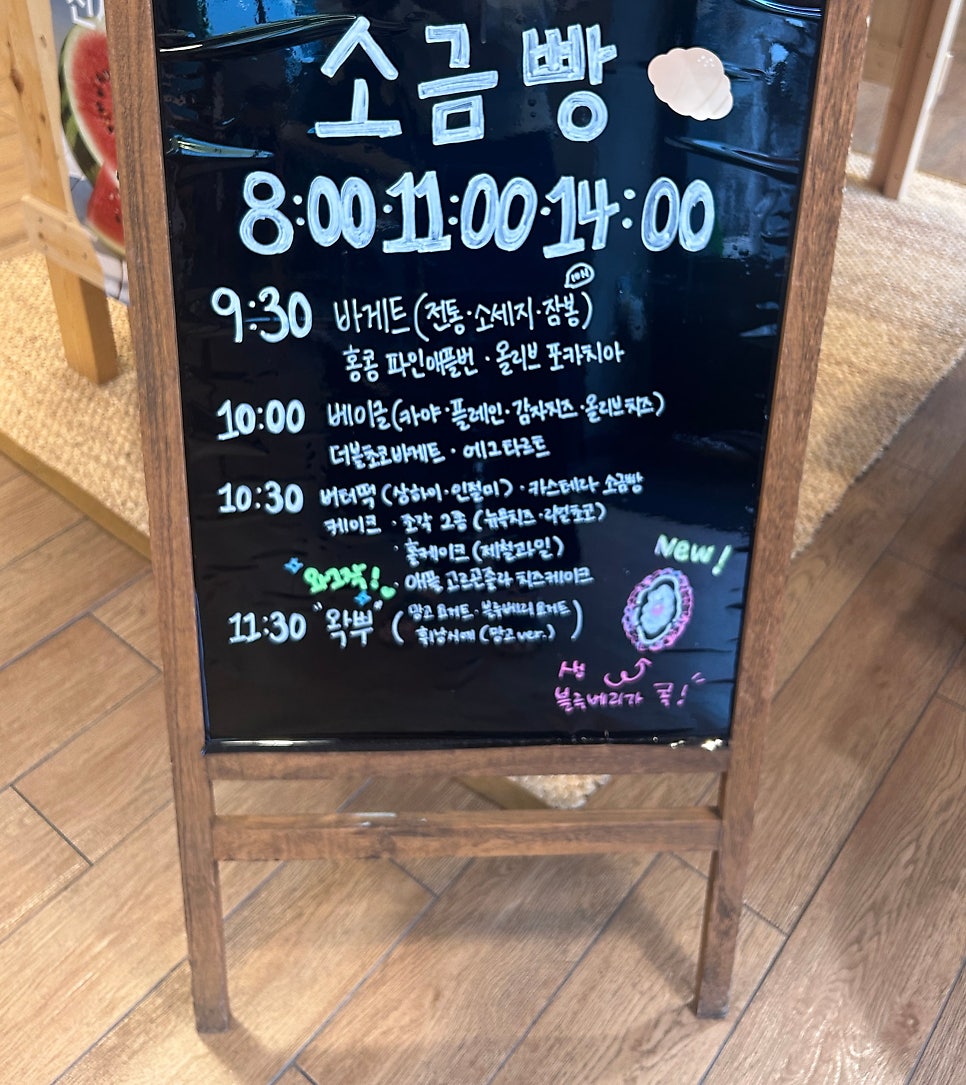 소금빵
8:00·11:00·14:00
9:30 바게트(전통·소세지·잠봉)
홍콩 파인애플번·올리브 포카치아
10:00 베이글(카야·플레인·감자치즈·올리브치즈)
더블초코바게트·에그타르트
10:30 버터떡(상하이·인절미)·카스테라 소금빵
케이크·조각 2종(뉴욕치즈·리얼초코)
·홀케이크(제철과일)
·애플 고르곤졸라 치즈케이크
11:30 "왁뿌" (망고 요거트·블루베리 요거트
(망고 ver.))
New!
생
블루베리가 콕!